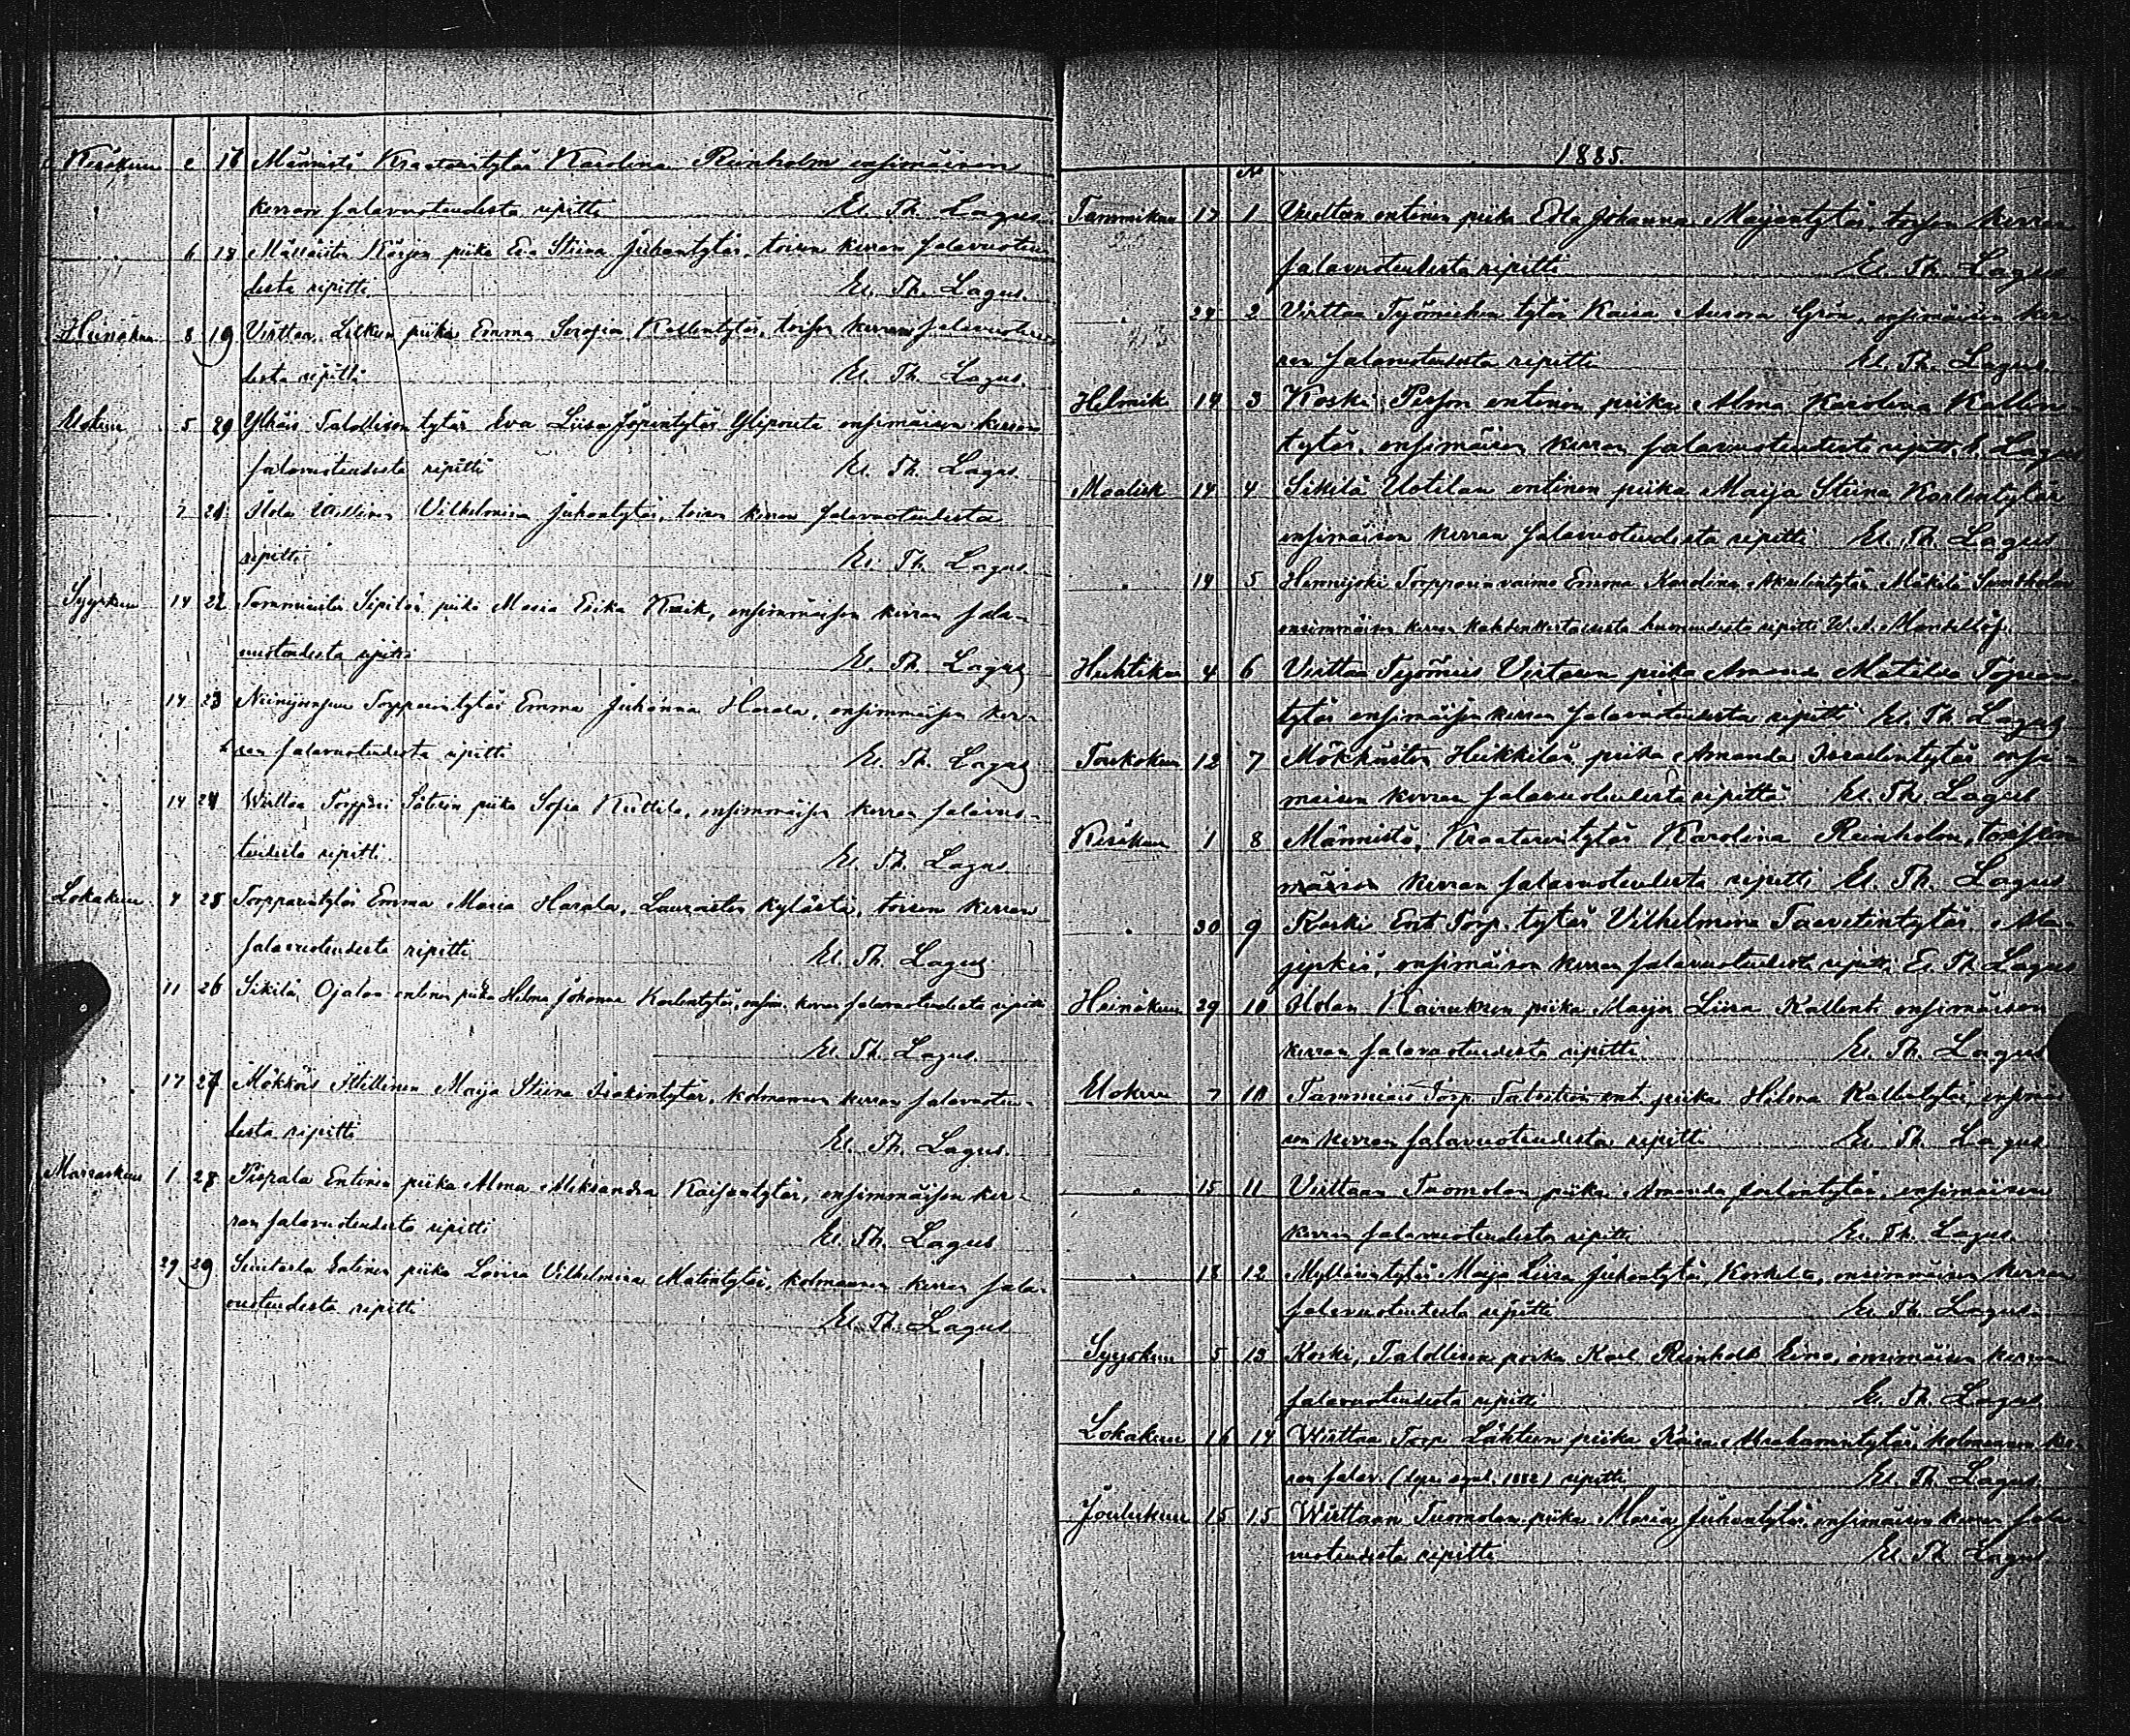 Kesäkuu 2 17 Männistö Kraatarintytär Karolina Reinholm ensimäisen
kerran salavuoteudesta ripitti El. Th. Lagus.
6 18 Kärjen piika Eva Stiina Juhantytär, toisen kerran salavuoteu-
desta ripitti El. Th. Lagus.
Heinäkuu 8 19 Virttaa, piika Emma Serafia Kallentytär, toisen kerran salavuoteu-
desta ripitti El. Th. Lagus.
Elokuu 5 20 Talollisen tytär Eva Liisa ensimäisen kerran
salavuoteudesta ripitti El. Th. Lagus.
21 Vilhelmina Juhontytär, toisen kerran salavuoteudesta
ripitti El. Th. Lagus.
Syyskuu 14 22 Sipilän piika Maria Erika ensimmäisen kerran sala-
vuoteudesta ripitti El. Th. Lagus
14 23 Torpparintytär Emma Juhanna Harala, ensimmäisen ker-
ran salavuoteudesta ripitti El. Th. Lagus
14 24 Wirttaa Torppari piika Sofia ensimmäisen kerran salavuo-
teudesta ripitti El. Th. Lagus
Lokakuu 4 25 Torpparintytär Emma Maria Harala, kylästä, toisen kerran
salavuoteudesta ripitti El. Th. Lagus
11 26 Sikilä, Ojalan entinen piika Helma Johanna Kaarlentytär, ensim. kerran salavuoteudesta ripitti
El. Th. Lagus.
17 27 Itsellinen Maija Stiina Isakintytär, kolmannen kerran salavuoteu-
desta ripitti El. Th. Lagus.
Marraskuu 1 28 Pispala Entinen piika Alma Aleksandra Kaisantytär, ensimmäisen ker-
ran salavuoteudesta ripitti El. Th. Lagus
29 29 Suutarla Entinen piika Loviisa Vilhelmina Matintytär, kolmannen kerran sala-
vuoteudesta ripitti El. Th. Lagus
1885.
No
Tammikuu 17 1 entinen piika Edla Johanna Maijantytär, toisen kerran
salavuoteudesta ripitti El. Th. Lagus
24 2 Virttaa Työmiehen tytär Kaisa Aurora Grön, ensimäisen ker-
ran salavuoteudesta ripitti El. Th. Lagus.
Helmik 14 3 Koski, entinen piika Alma Karolina Kallen-
tytär, ensimäisen kerran salavuoteudesta ripitti E. Lagus
Maalisk 14 4 Sikilä Uotilan entinen piika Maija Stiina Kaarlentytär
ensimäisen kerran salavuoteudesta ripitti El. Th. Lagus
14 5 Hennijoki Torpparin vaimo Emma Karolina Mäkilä
ensimmäisen kerran kahdenkertaisesta huoruudesta ripitti W. A. Mandellöf.
Huhtikuu 4 6 Virttaa Työmies Virtasen piika Amanda Matilda
tytär ensimäisen kerran salavuoteudesta ripitti El. Th. Lagus
Toukokuu 12 7 Heikkilän piika Amanda Israelintytär ensi-
mäisen kerran salavuoteudesta ripitti El. Th. Lagus
Kesäkuu 1 8 Männistö, Kraatarintytär Karolina Reinholm,
mäisen kerran salavuoteudesta ripitti El. Th. Lagus
30 9 Koski Ent Torp. tytär Vilhelmina Taavetintytär
ensimäisen kerran salavuoteudesta ripitti E. Th Lagus
Heinäkuu 29 10 piika Maija Liisa ensimäisen
kerran salavuoteudesta ripitti. El. Th. Lagus
Elokuu 7 10 Torp. ent. piika Hilma Kallentytär, ensimäi-
sen kerran salavuoteudesta ripitti El. Th. Lagus
15 11 Virttaan Tuomolan piika Amanda ensimäisen
kerran salavuoteudesta ripitti El. Th. Lagus.
18 12 Maija Liisa Juhontytär, ensimmäisen kerran
salavuoteudesta ripitti El. Th. Lagus.
Syyskuu 5 13 Koski, Talollisen poika Karl Reinhold ensimäisen kerran
salavuoteudesta ripitti El. Th. Lagus
Lokakuu 16 14 Wirttaa Torp. piika Kaisa Abrahamintytär, kolmannen ker-
ran salav. 1882) ripitti El. Th. Lagus.
Joulukuu 15 15 Wirttaan Tuomolan piika Maria Juhontytär, ensimäisen kerran sala-
vuoteudesta ripitti El. Th. Lagus